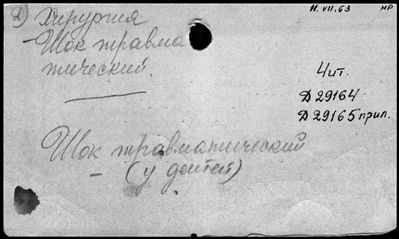 2) Хирургия
Н. VII. 63 НР
- Шок травма
тический.
Чит.
Д 29164
Д 29165 прил.
Шок травматический
- (у детей)